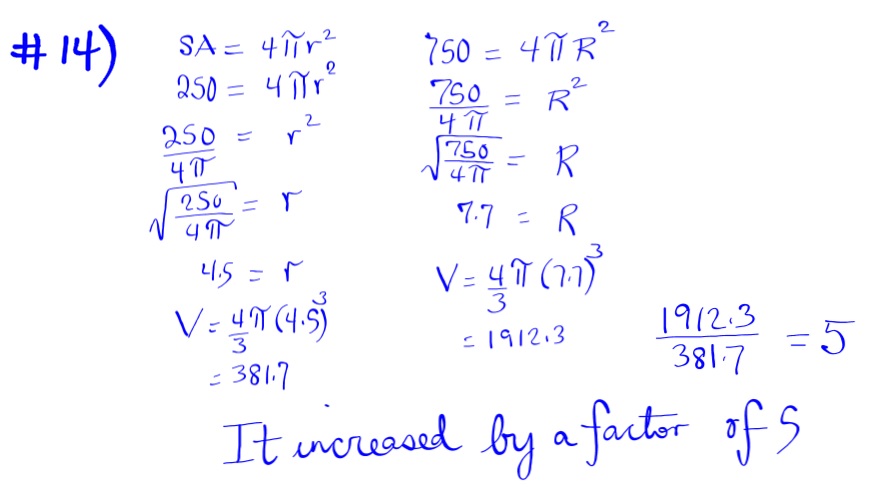 #14)
SA = 4πr²
250 = 4πr²
250/4π = r²
√(250/4π) = r
4.5 = r
V = 4/3 π(4.5)³
= 381.7
750 = 4πR²
750/4π = R²
√(750/4π) = R
7.7 = R
V = 4/3 π(7.7)³
= 1912.3
1912.3/381.7 = 5
It increased by a factor of 5